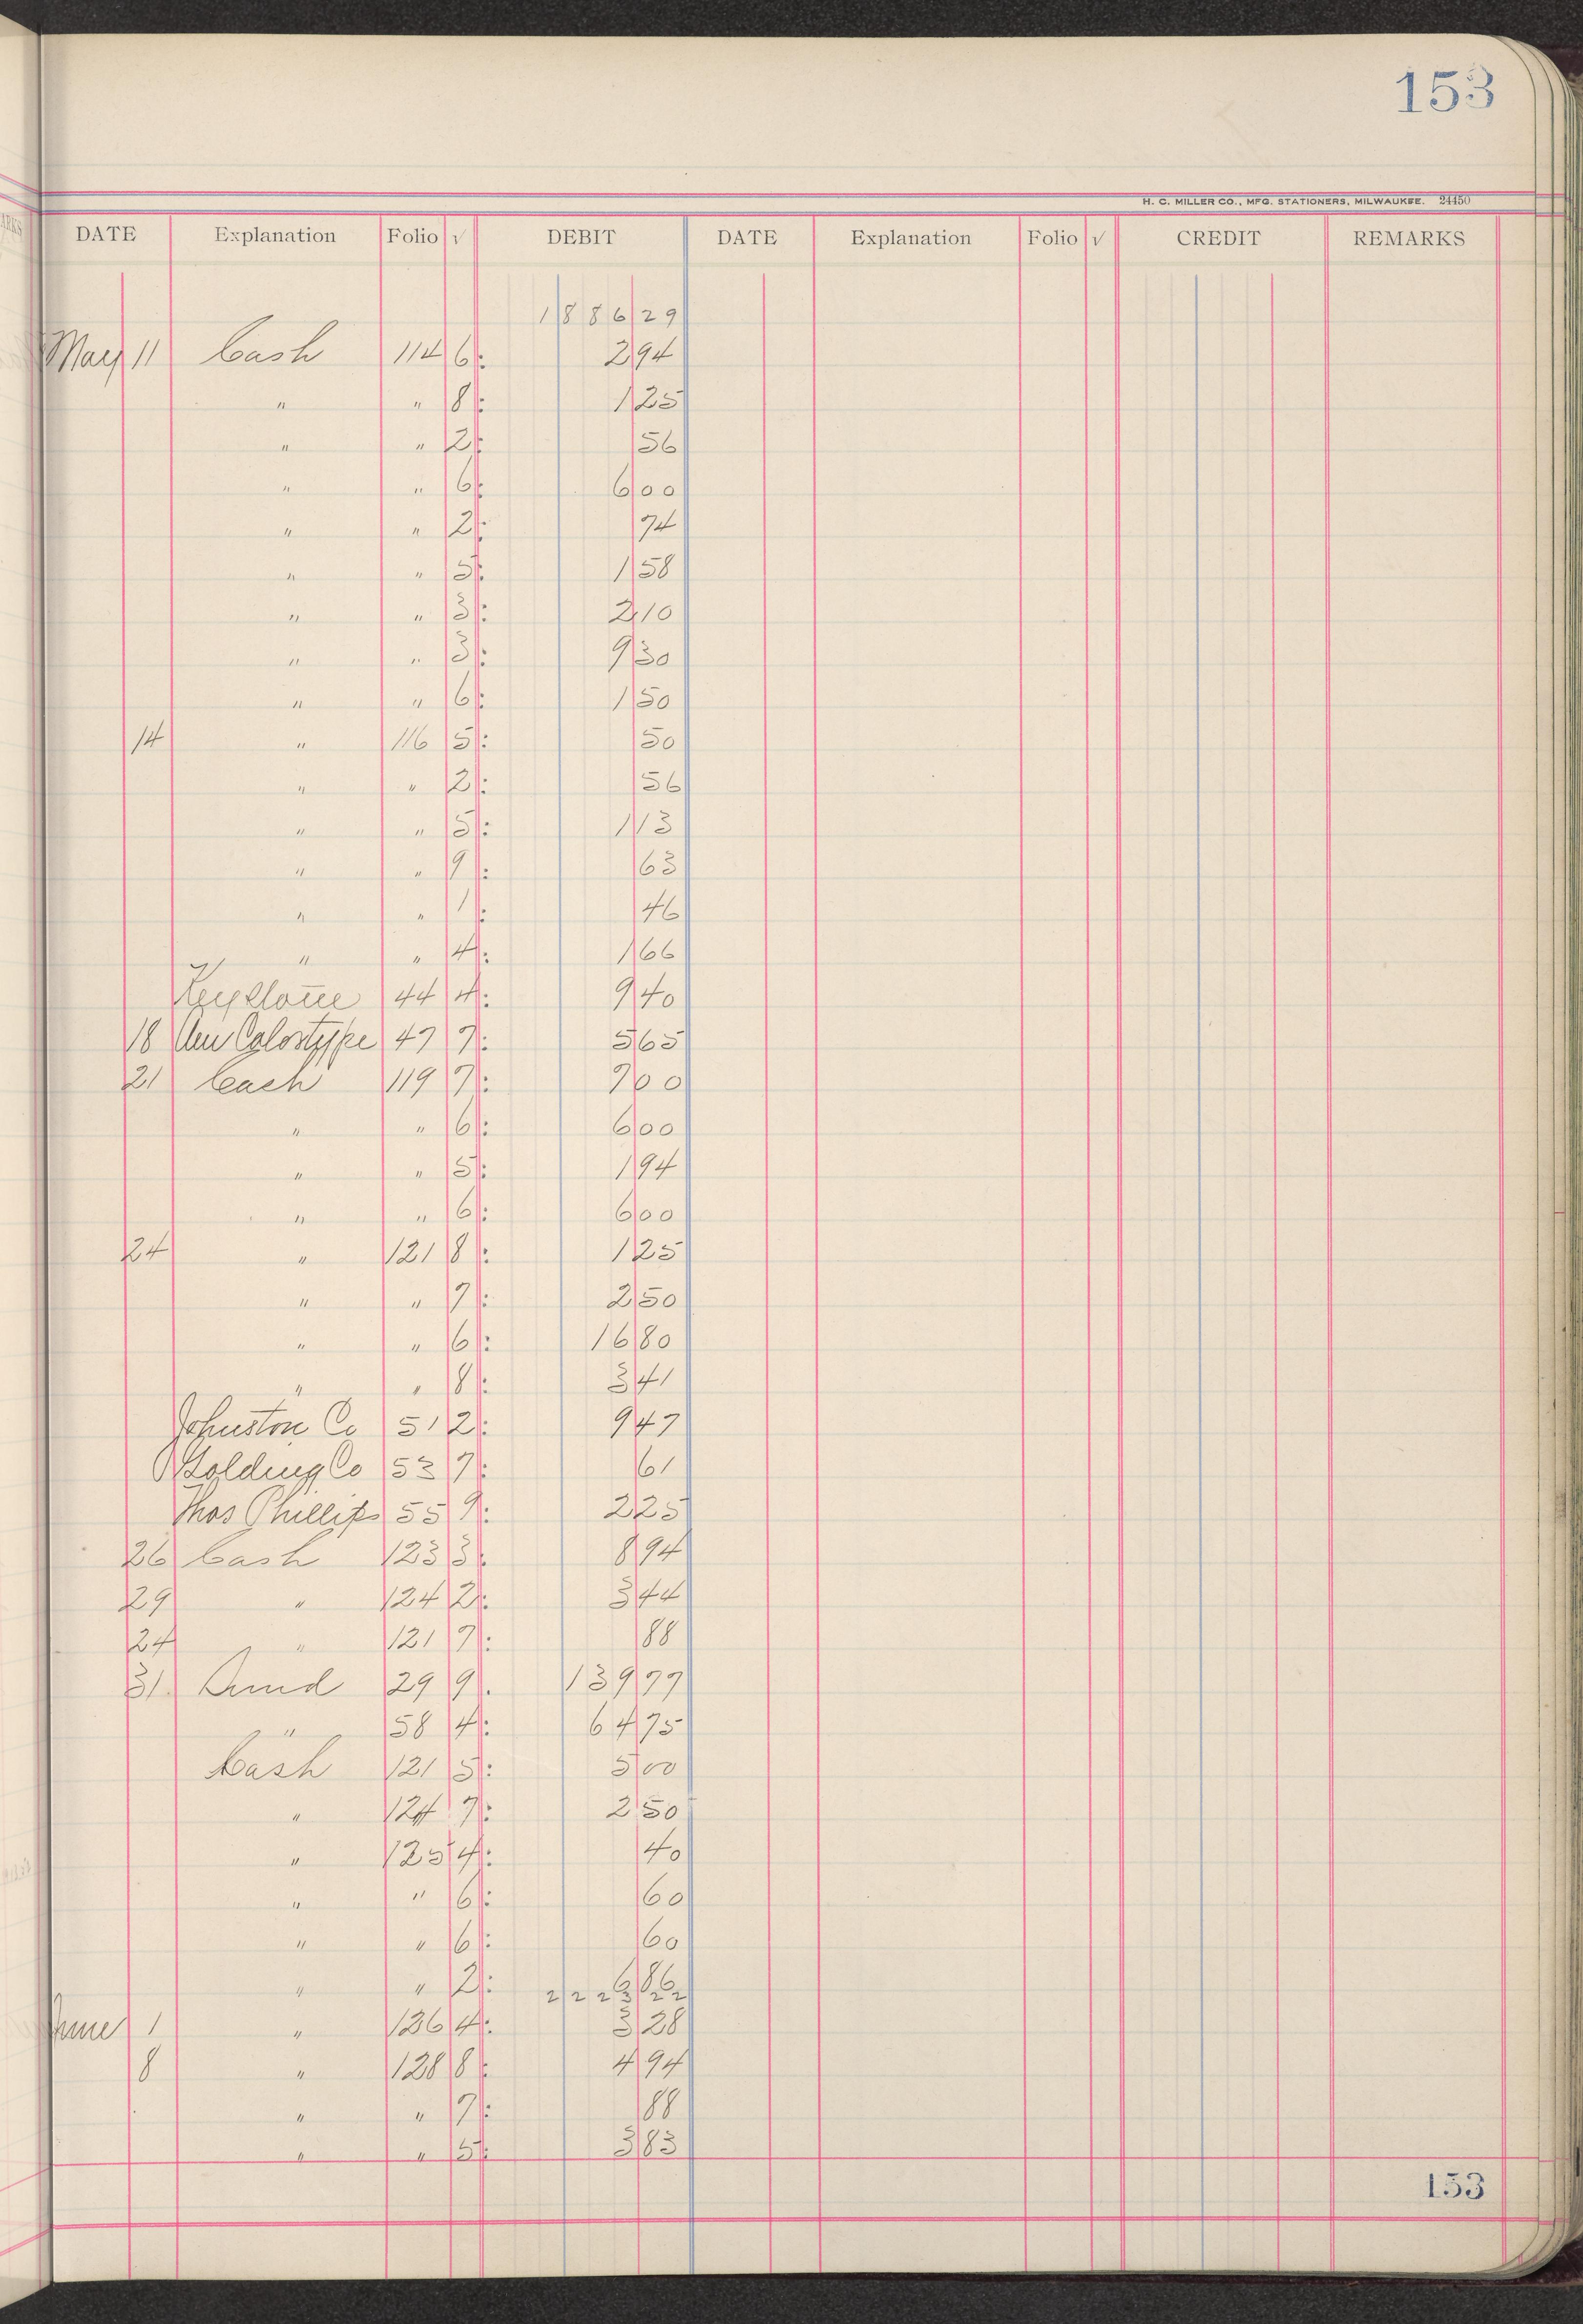 153
H. C. MILLER CO., MFG. STATIONERS, MILWAUKEE. 24450
DATE Explanation Folio √ DEBIT DATE Explanation Folio √ CREDIT REMARKS
1886 29
May 11 Cash 114 6: 2 94
" " 8: 1 25
" " 2: 56
" " 6: 6 00
" " 2: 74
" " 5: 1 58
" " 3: 2 10
" " 3: 9 30
" " 6: 1 50
14 " 116 5: 50
" " 2: 56
" " 5: 1 13
" " 9: 63
" " 1: 46
" " 4: 1 66
Keystone 44 4: 9 40
18 Am Colortype 47 7: 5 65
21 Cash 119 7: 7 00
" " 6: 6 00
" " 5: 1 94
" " 6: 6 00
24 " 121 8: 1 25
" " 7: 2 50
" " 6: 16 80
" " 8: 3 41
Johnston Co 51 2: 9 47
Golding Co 53 7: 61
Thos Phillips 55 9: 2 25
26 Cash 123 3: 8 94
29 " 124 2: 3 44
24 " 121 7: 88
31 Sund 29 9: 139 77
" 58 4: 64 75
Cash 121 5: 5 00
" 124 7: 2 50
" 125 4: 40
" " 6: 60
" " 6: 60
" " 2: 6 86
2223 22
June 1 " 126 4: 3 28
8 " 128 8: 4 94
" " 7: 88
" " 5: 3 83
153